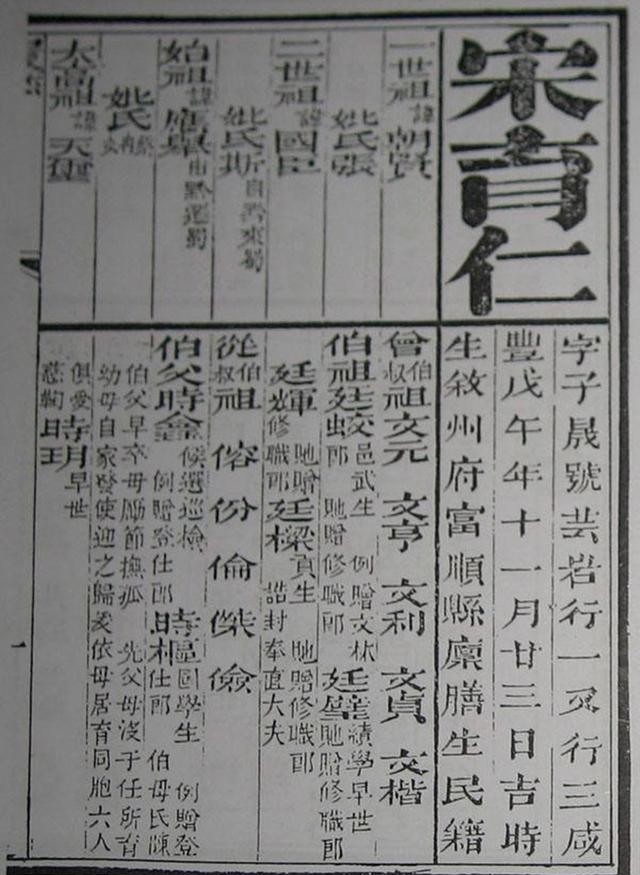 宋育仁
字子晟號芸岩行一又行三咸
豐戊午年十一月廿三日吉時
生敘州府富順縣廩膳生民籍
一世祖諱朝賢
妣氏張
二世祖諱國臣
妣氏斯自黔來蜀
始祖諱應舉由黔遷蜀
妣氏
太高祖諱天
曾伯叔祖文元 文亨 文利 文貞 文楷
伯祖廷蛟邑武生 例贈文林郎 貤贈修職郎 廷璧績學早世 貤贈修職郎
廷輝貤贈修職郎 廷樑貢生 貤贈修職郎 誥封奉直大夫
從伯叔祖 傛 份 倫 傑 儉
伯父時鑫候選巡檢 例贈登仕郎 時樞國學生 例贈登仕郎 伯母氏陳
伯父早卒母勵節撫孤 先父母沒于任所育
幼母自家發使迎之歸爰依母居育同胞六人
俱愛慈 時玥早世
一